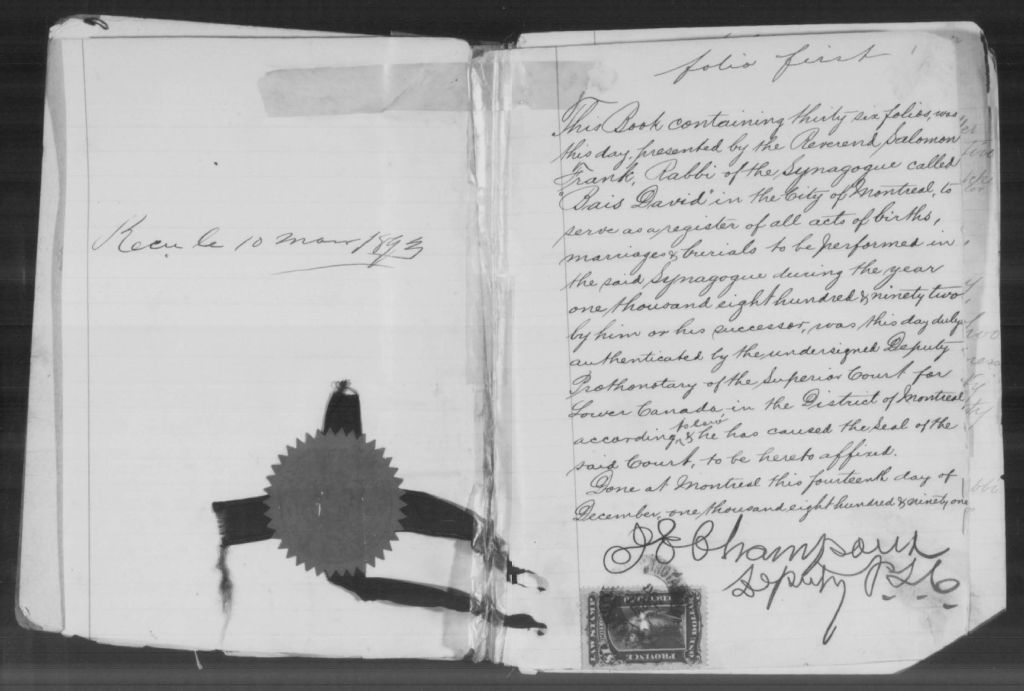 Recu le 10 mars 1893
folio first
This Book containing thirty six folios, was
this day presented by the Reverend Salomon
Frank, Rabbi of the Synagogue called
"Bais David" in the City of Montreal, to
serve as a register of all acts of births,
marriages & burials to be performed in
the said Synagogue during the year
one thousand eight hundred & ninety two
by him or his successor, was this day duly
authenticated by the undersigned Deputy
Prothonotary of the Superior Court for
Lower Canada, in the District of Montreal
to law
according & he has caused the Seal of the
said Court, to be hereto affixed.
Done at Montreal this fourteenth day of
December, one thousand eight hundred & ninety one
J E Champoux
Deputy P. S. C.
LAW STAMP
ONE DOLLAR
PROVINCE